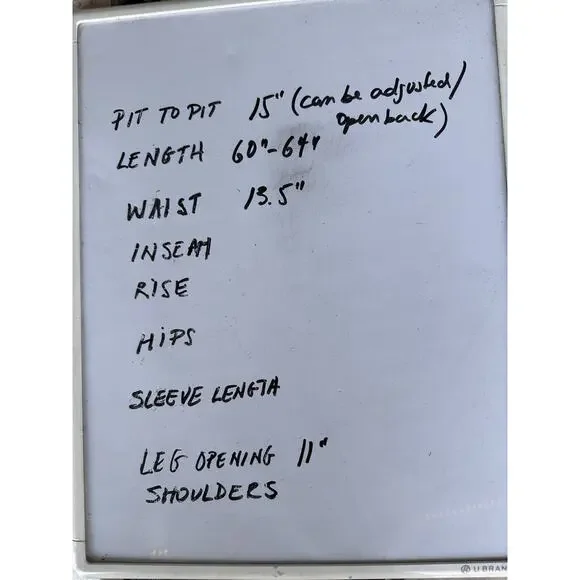 PIT TO PIT 15" (can be adjusted/
open back)
LENGTH 60"-64"
WAIST 13.5"
INSEAM
RISE
HIPS
SLEEVE LENGTH
LEG OPENING 11"
SHOULDERS
U BRAN